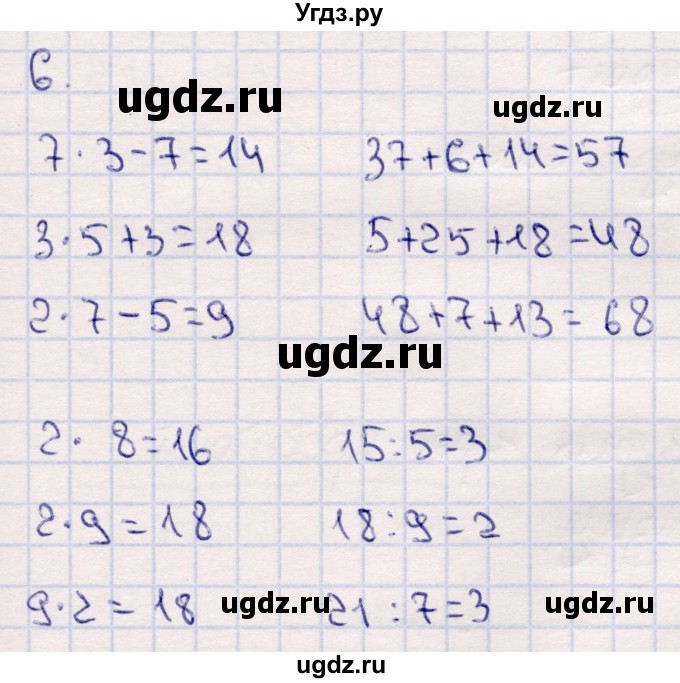 Угдз.ру
6.
ugdz.ru ugdz.ru
7·3-7=14 37+6+14=57
3·5+3=18 5+25+18=48
2·7-5=9 48+7+13=68
ugdz.ru
2·8=16 15:5=3
2·9=18 18:9=2
9·2=18 ugdz.ru 21:7=3 ugdz.ru
ugdz.ru